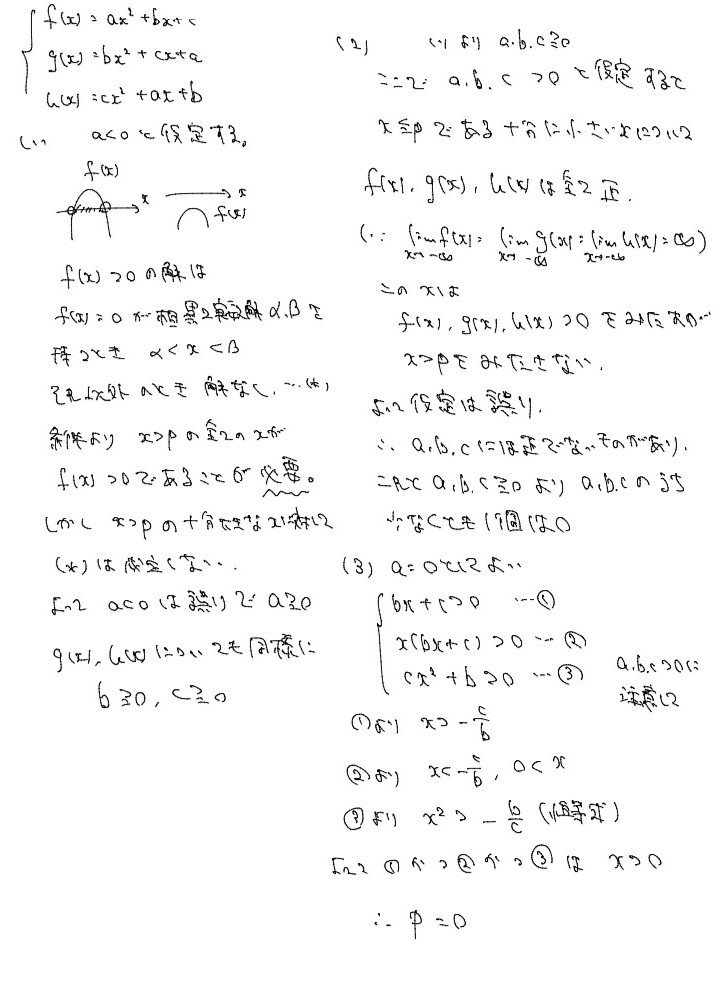 f(x) = ax² + bx + c
g(x) = bx² + cx + a
h(x) = cx² + ax + b
(1) a<0 と仮定する。
f(x)
x
x
f(x)
f(x) > 0 の解は
f(x) = 0 が相異2実数解 α, β を
持つとき α < x < β
それ以外のとき 解なし. …(*)
条件より x>p の全ての x が
f(x) >0 であることが 必要。
しかし x>p の十分大きな x に対して
(*) は成立しない.
よって a<0 は誤りで a≧0
g(x), h(x) についても同様に
b≧0, c≧0
(2) (1) より a.b.c≧0
ここで a.b.c >0 と仮定すると
x≦p である十分に小さい x について
f(x), g(x), h(x) は全て正.
(∵ lim f(x) = lim g(x) = lim h(x) = ∞)
x→-∞ x→-∞ x→-∞
この x は
f(x), g(x), h(x) > 0 をみたすが
x>p をみたさない.
よって仮定は誤り.
∴ a,b,c には正でないものがあり.
これと a,b,c≧0 より a,b,c のうち
少なくとも1個は0
(3) a=0 としてよい
bx+c>0 …①
x(bx+c) > 0 …②
cx²+b>0 …③
a,b,c>0 に
注意して
①より x > -c/b
②より x < -c/b, 0 < x
③より x² > -b/c (恒等式)
よって ①かつ②かつ③ は x>0
∴ p=0